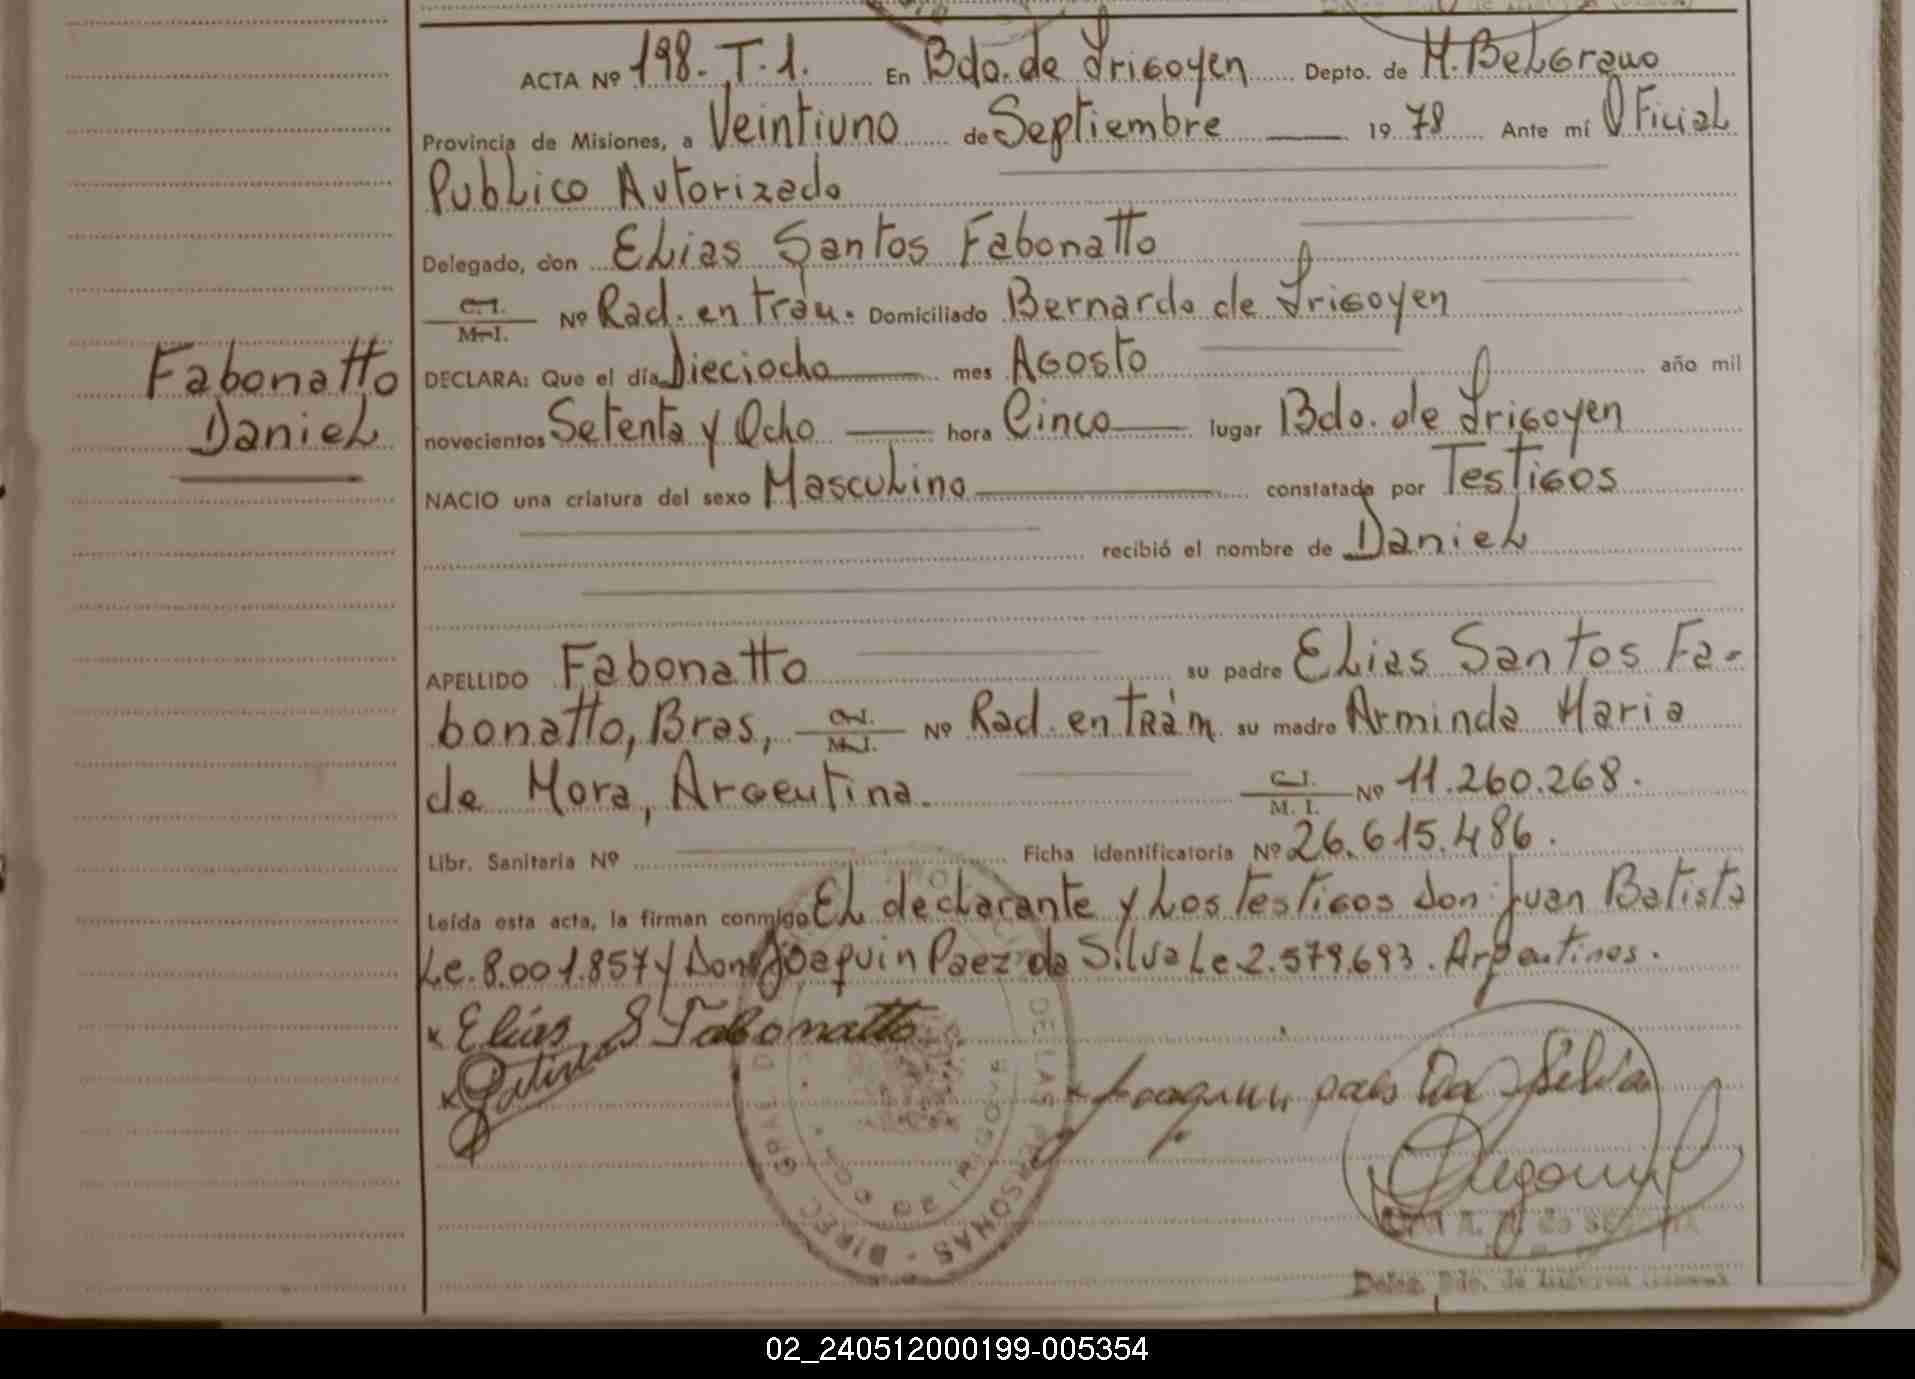 ACTA Nº 198. T. 1. En Bdo. de Irigoyen Depto. de M. Belgrano
Provincia de Misiones, a Veintiuno de Septiembre 19 78 Ante mí Oficial
Publico Autorizado
Delegado, don Elias Santos Fabonatto
C.I. / M.I. Nº Rad. en trám. Domiciliado Bernardo de Irigoyen
Fabonatto
Daniel
DECLARA: Que el día Dieciocho mes Agosto año mil
novecientos Setenta y Ocho hora Cinco lugar Bdo. de Irigoyen
NACIO una criatura del sexo Masculino constatada por Testigos
recibió el nombre de Daniel
APELLIDO Fabonatto su padre Elias Santos Fa-
bonatto, Bras, C.I. / M.I. Nº Rad. en Trám. su madre Arminda Maria
de Mora, Argentina. C.I. / M. I. Nº 11.260.268.
Libr. Sanitaria Nº Ficha identificatoria Nº 26.615.486.
Leída esta acta, la firman conmigo El declarante y Los testigos Don Juan Batista
Le. 8.001.857 y Don Joaquin Paez da Silva Le 2.579.693. Argentinos.
x Elías S Fabonatto
x Joaquin paes Da Silva
DIREC GRAL DE LAS PERSONAS
02_240512000199-005354